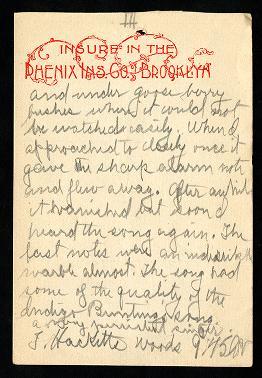 14
INSURE IN THE
PHENIX INS. CO. BROOKLYN
and under goose berry
bushes where it could not
be watched easily. When I
approached to closely once it
gave the sharp alarm note
and flew away. After awhile
it vanished but soon I
heard the song again. The
last notes were an indistinguish
warble almost. The song had
some of the quality of the
Indigo Buntings song.
a very persistent singer.
T. Hacketts Woods